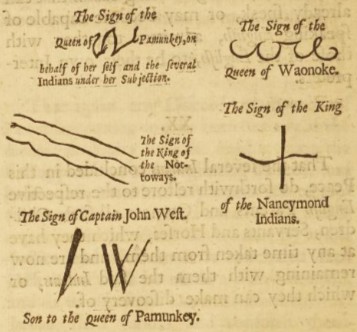 The Sign of the
Queen of Pamunkey, on
behalf of her self and the several
Indians under her Subjection.
The Sign of the
Queen of Waonoke.
The Sign of
the King of
the Not-
toways.
The Sign of the King
of the Nancymond
Indians.
The Sign of Captain John West.
Son to the Queen of Pamunkey.